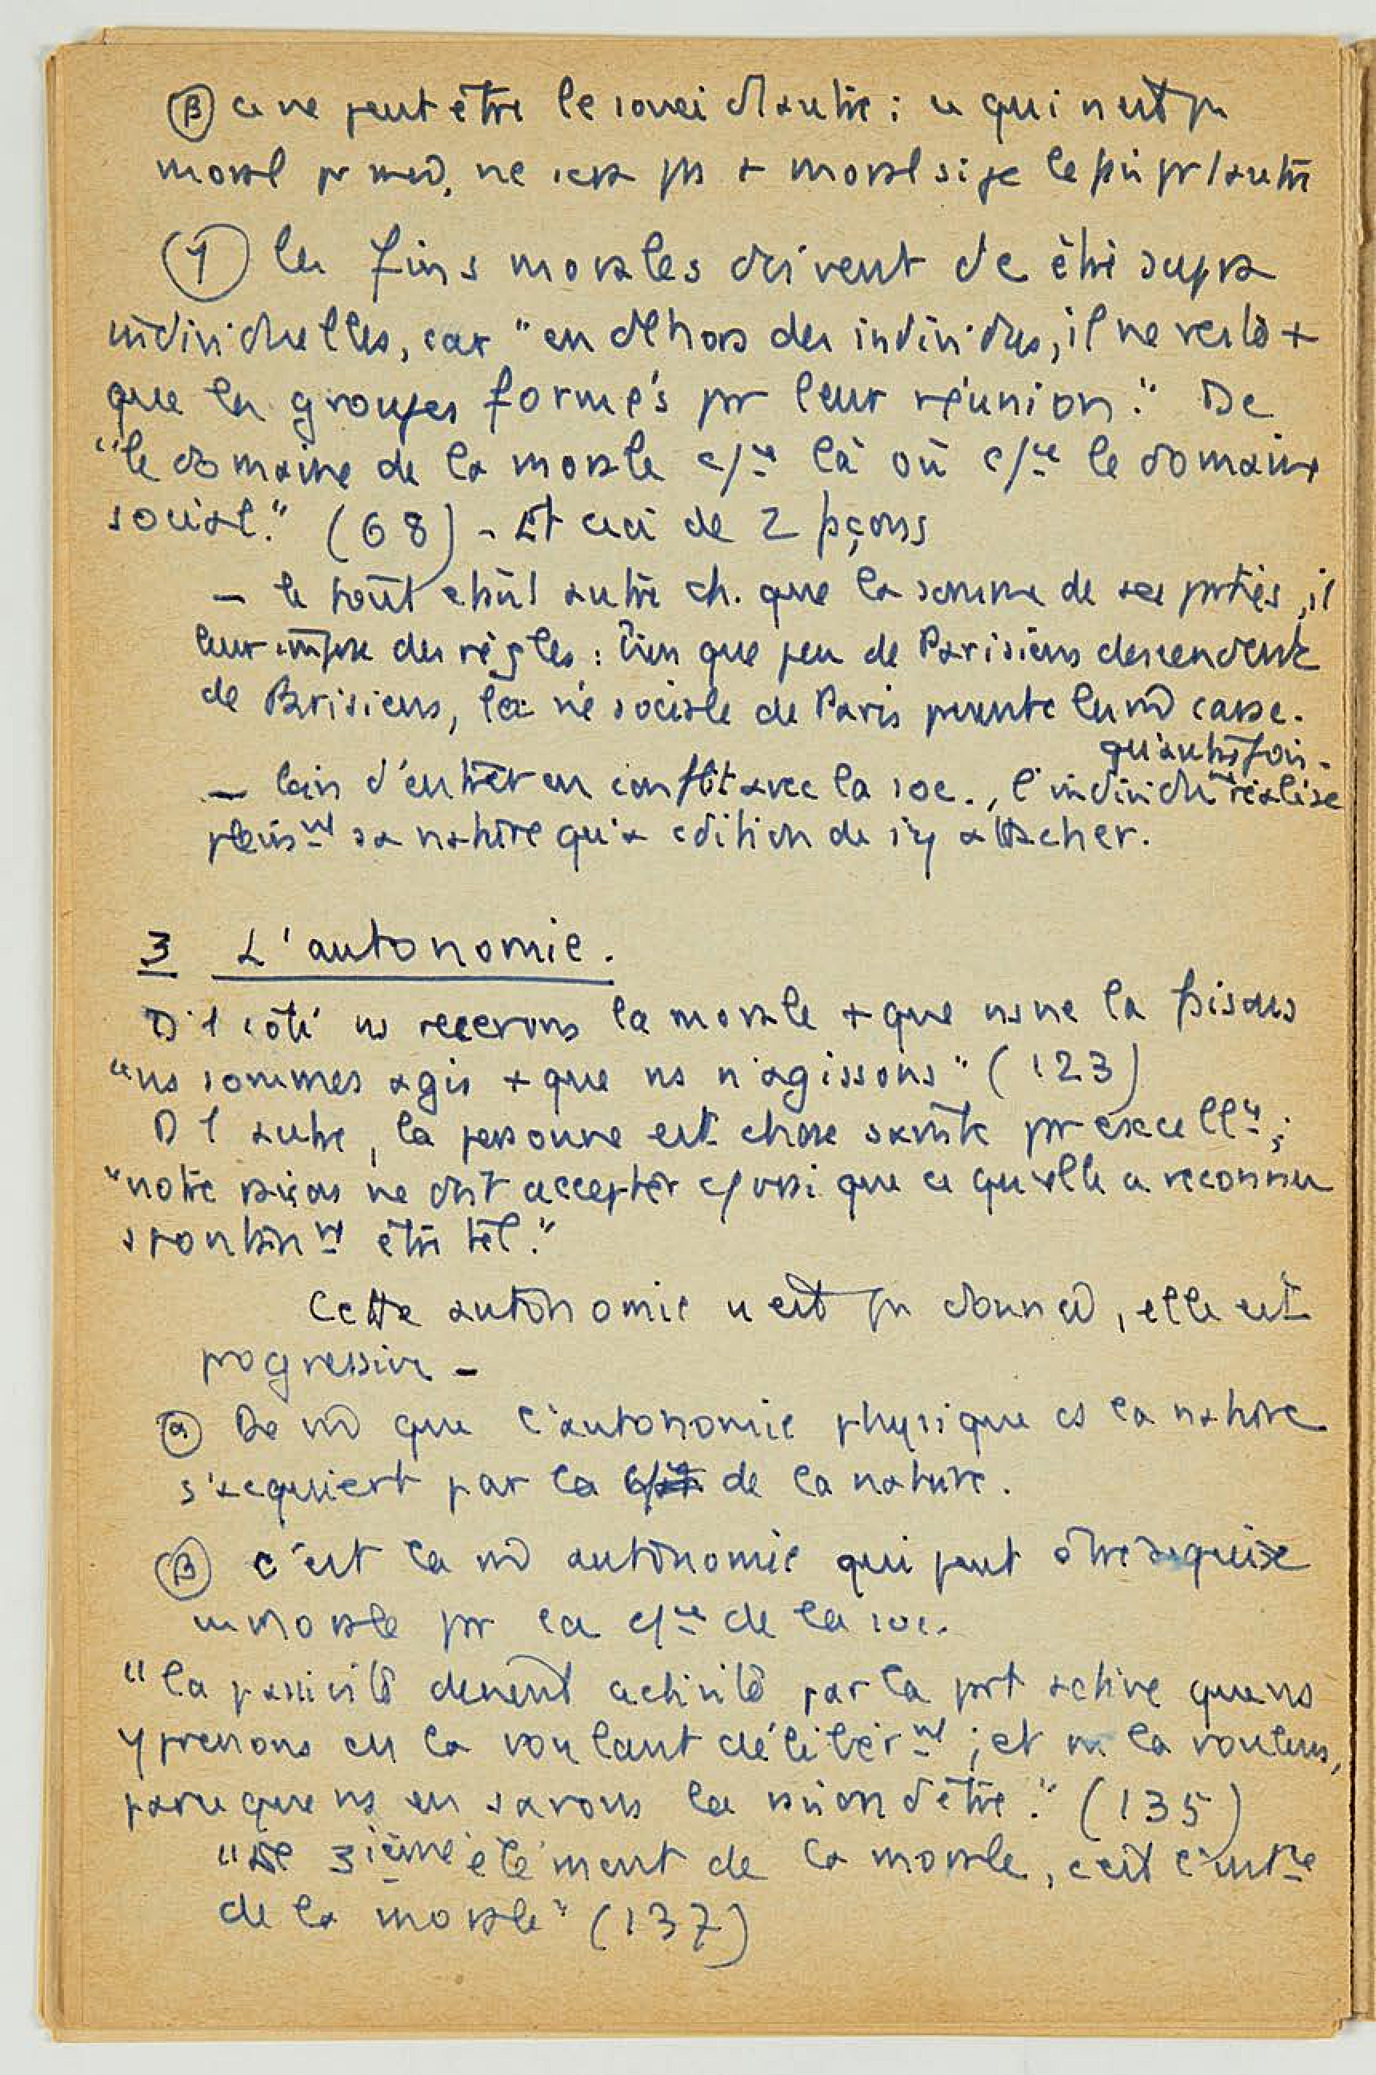 β ce ne peut être le souci d'autre : ce qui n'est pas
moral pr md, ne sera ps + moral si je le fais pr l'autre
γ les fins morales doivent dc être supra
individuelles, car "en dehors des individus, il ne reste +
que les groupes formés pr leur réunion." Dc
"le domaine de la morale c/ce là où c/ce le domaine
social." (68) - Et ceci de 2 façons
- le tout étant autre ch. que la somme de ses parties, il
leur impose des règles : bien que peu de Parisiens descendent
de Parisiens, la vie sociale de Paris présente le md carac.
- loin d'entrer en conflit avec la soc., l'individu ne réalise
qu'autrefois.
plein.nt sa nature qu'à cdition de s'y attacher.
3 L'autonomie.
D'1 côté ns recevons la morale + que ns ne la faisons
"ns sommes agis + que ns n'agissons" (123)
D'1 autre, la personne est chose sacrée pr excell.ce ;
"notre raison ne doit accepter c/ vrai que ce qu'elle a reconnu
spontan.nt être tel."
Cette autonomie n'est ps donnée, elle est
progressive -
α De md que l'autonomie physique cs la nature
s'acquiert par la de la nature.
β c'est la md autonomie qui peut être acquise
en morale pr la c/ce de la soc.
"la passivité devient activité par la part active que ns
y prenons en la voulant délibér.nt ; et ns la voulons,
parceque ns en savons la raison d'être." (135)
"Le 3ième élément de la morale, c'est l'int.ce
de la morale" (137)